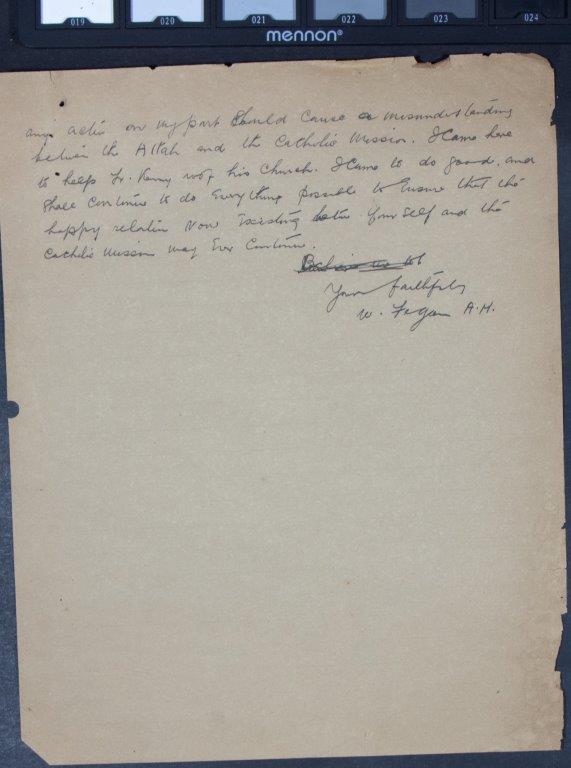 019 020 021 022 023 024
mennon®
any action on my part should cause a misunderstanding
between the Attah and the Catholic Mission. I came here
to help Fr. Kenny roof his Church. I came to do good, and
shall continue to do everything possible to ensure that the
happy relation now existing between yourself and the
Catholic Mission may ever continue.
Believe me to
Yours faithfully
W. Fegan A.H.